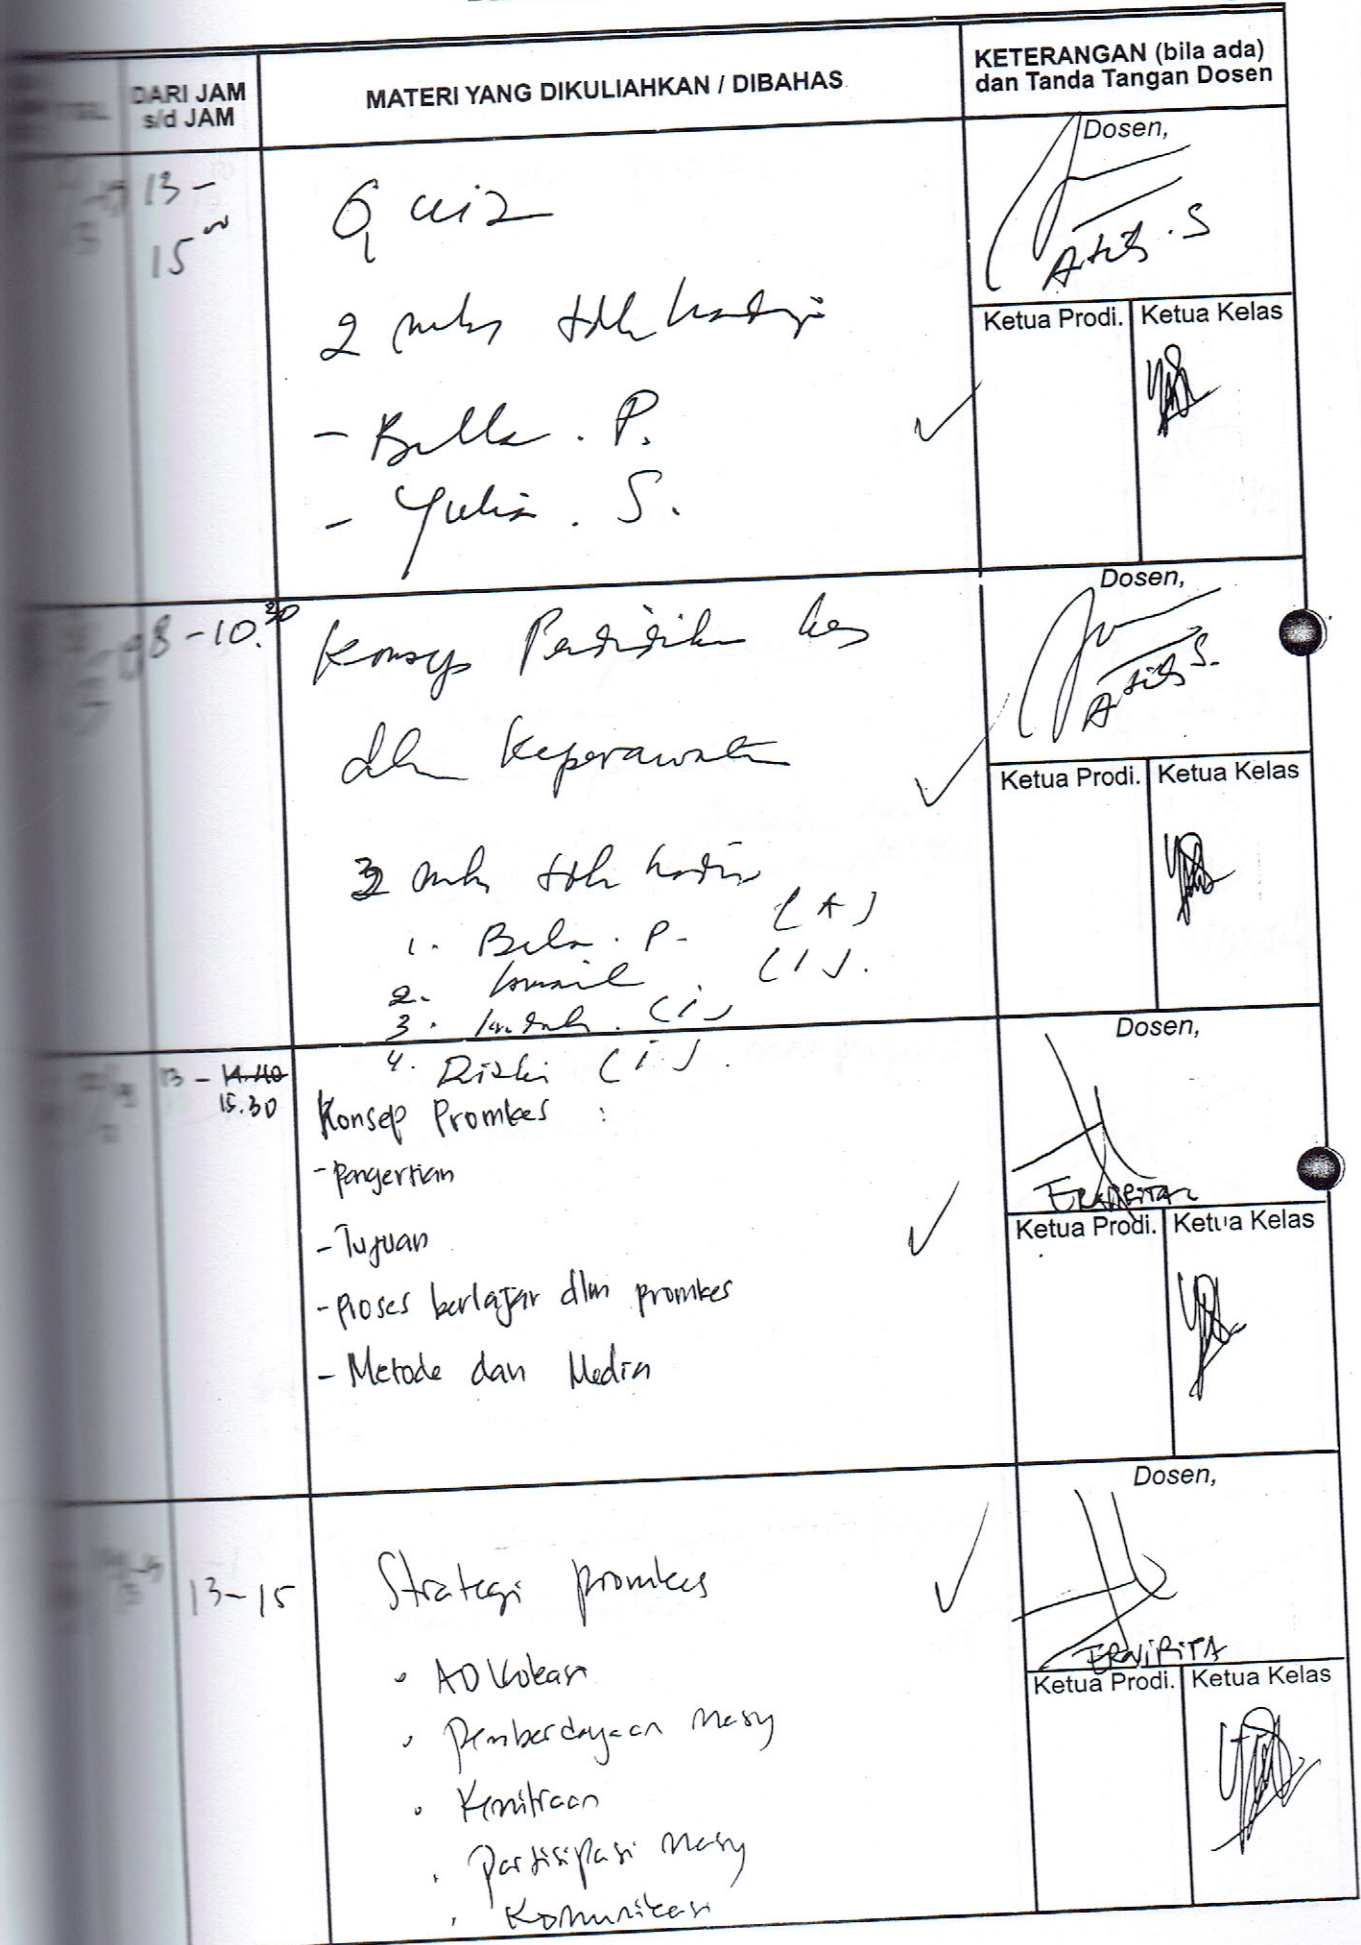 DARI JAM
s/d JAM
MATERI YANG DIKULIAHKAN / DIBAHAS
KETERANGAN (bila ada)
dan Tanda Tangan Dosen
13 -
15 00
Quiz
2 mhs tdk
- Bella . P.
- Yulia . S.
Dosen,
Atih . S
Ketua Prodi.
Ketua Kelas
8 - 10.30
Konsep Pendidikan kes
dlm Keperawatan
3 mhs tdk hadir
1. Bela . P. (A)
2. Ismail (I).
3. Indah . (i)
4. Rizki (i).
Dosen,
Atih S.
Ketua Prodi.
Ketua Kelas
13 - 14.40
15.30
Konsep Promkes :
- Pengertian
- Tujuan
- Proses berlajar dlm promkes
- Metode dan Media
Dosen,
ERNIRITA
Ketua Prodi.
Ketua Kelas
13-15
Strategi promkes
• ADVokasi
• Pemberdayaan Masy
• Kemitraan
• Partisipasi Masy
• Komunikasi
Dosen,
ERNIRITA
Ketua Prodi.
Ketua Kelas